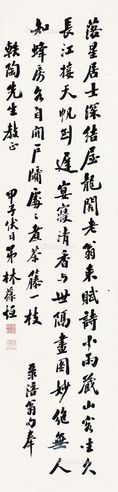 落星居士深結屋龍閣老翁來賦詩小雨藏山客坐久
長江接天帆到遲宴寢清香與世隔畫圖妙絕無人
知蜂房各自開戶牖處〻煮茶藤一枝
涪翁句奉
軼陶先生教正
甲子伏日弟林葆恒